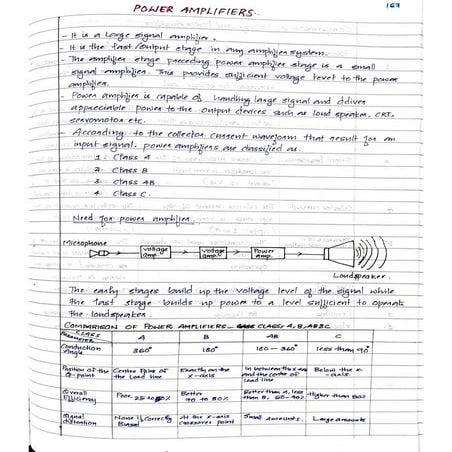 POWER AMPLIFIERS.
167
- It is a Large signal amplifier.
- It is the last/output stage in any amplifier system.
- The amplifier stage preceding power amplifier stage is a small
signal amplifier. This provides sufficient voltage level to the power
amplifier.
- Power amplifier is capable of handling large signal and
appreciable power to the output devices such as loud speaker, CRT,
servomotor etc.
- According to the collector current waveform that result for an
input signal, power amplifiers are classified as.
1. Class A
2. Class B
3. Class AB
4. Class C.
Need for power amplifier.
Microphone
Voltage amp.
Voltage amp.
Power amp.
Loudspeaker.
The early stages build up the voltage level of the signal while
the last stage builds up power to a level sufficient to operate
the loudspeaker.
COMPARISON OF POWER AMPLIFIERS - CLASS A, B, AB & C
CLASS
PARAMETER A B AB C
Conduction Angle 360° 180° 180 - 360° less than 90°
Position of the Q-point Centre Point of the Load line Exactly on the x-axis In between the x-axis and the centre of load line Below the x-axis.
Overall Efficiency Poor, 25 to 50% Better 70 to 80% Better than A, less than B, 50-70% Higher than 80%
Signal distortion None if correctly Biased At the x-axis crossover point Small amounts. Large amounts